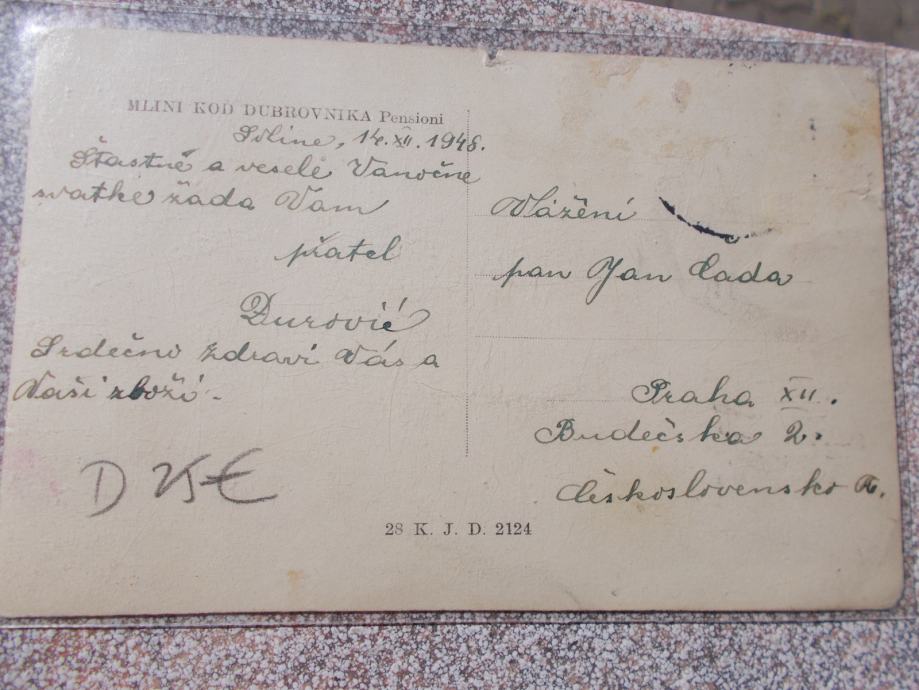 MLINI KOD DUBROVNIKA Pensioni
Soline, 14.XII.1948.
Šťastné a veselé Vanočne
svatke žada Vam
přatel
Đurović
Srdečno zdravi Vás a
Vaši zboži.
D 25€
28 K. J. D. 2124
Vážění
pan Jan Čada
Praha XII.
Budečska 2.
Československo